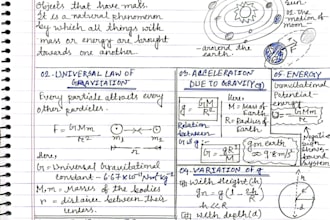 objects that have mass.
It is a natural phenomenon
by which all things with
mass or energy are brought
towards one another.
Sun
01. The
motion of
moon
around the
earth.
02. UNIVERSAL LAW OF
GRAVITATION
Every particle attracts every
other particles.
F = GMm
r²
m₁
m₂
r
Here,
G = Universal Gravitational
constant
M,m = Masses of the bodies
r = distance between their
centers.
03. ACCELERATION
DUE TO GRAVITY(g)
g = GM
R²
Here:
M = Mass of
Earth
R = Radius of
Earth
Relation
between
G & g
G = gR²
M
g on earth
≈ 9.8 m/s²
04. VARIATION OF g
(1) With Height(h)
h << R
(2) With depth(d)
05. ENERGY
Gravitational
Potential
energy
U = - GMm
r
system